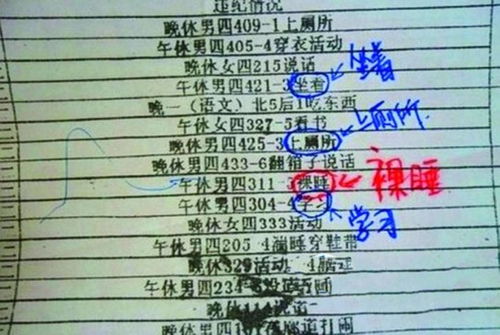 违纪情况
晚休男四409-1上厕所
午休男四405-4穿衣活动
晚休女四215说话
午休男四421-3坐着
坐着
晚一（语文）北5后1吃东西
午休女四327-5看书
晚休男四425-3上厕所
上厕所
晚休男四433-6翻箱子说话
午休男四311-3裸睡
裸睡
午休男四304-4学习
学习
晚休女四333活动
午休男四205-4湍睡穿鞋带
晚休329活动
午休男四234
晚休
晚休男四
打闹